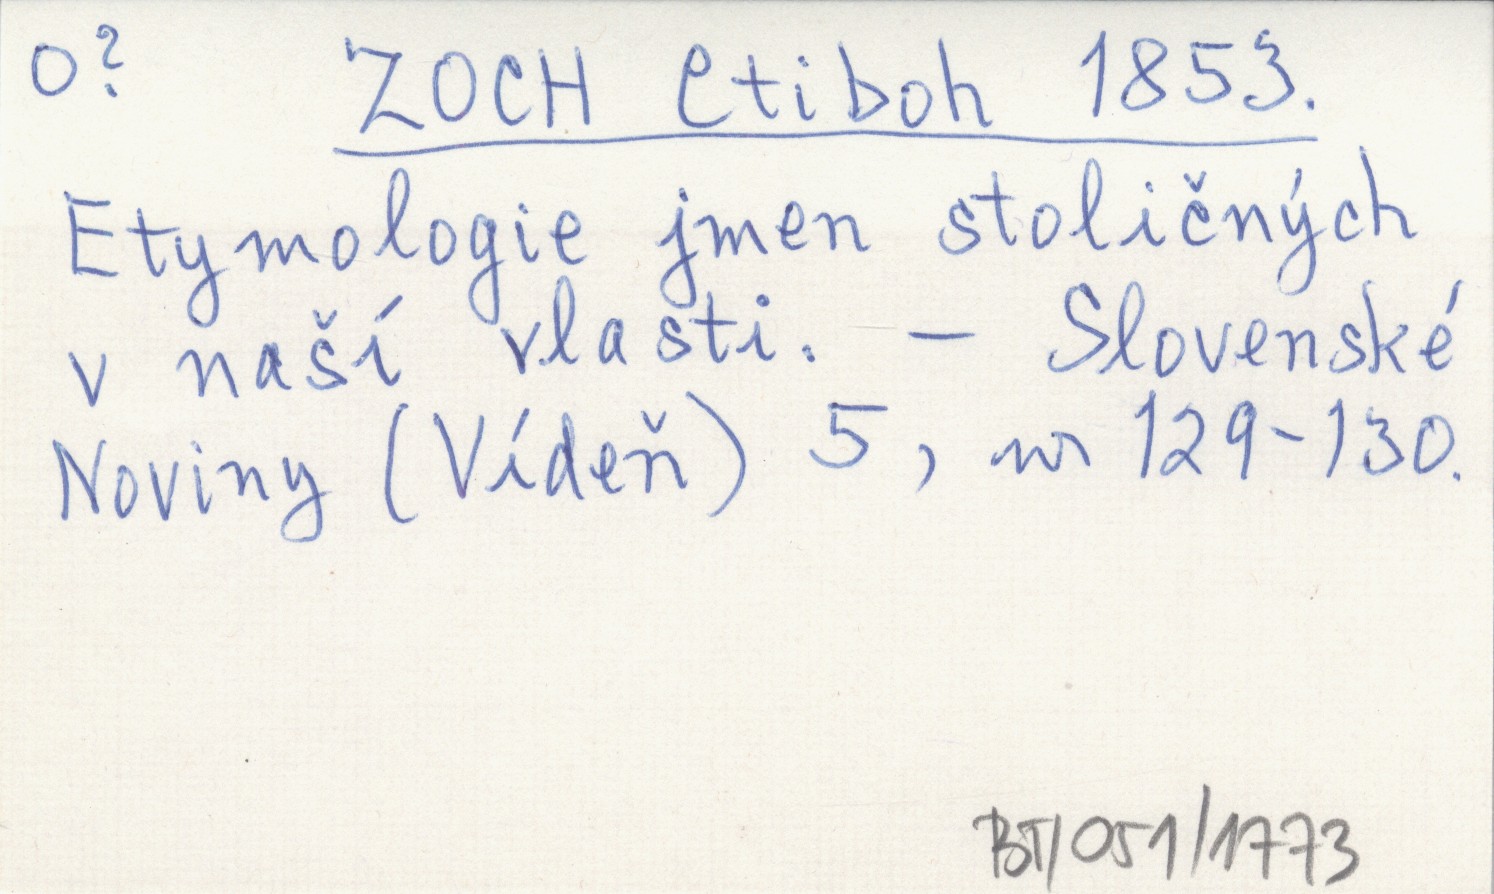 O? ZOCH Ctiboh 1853.
Etymologie jmen stoličných
v naší vlasti. – Slovenské
Noviny (Vídeň) 5, nr 129-130.
BT/051/1773